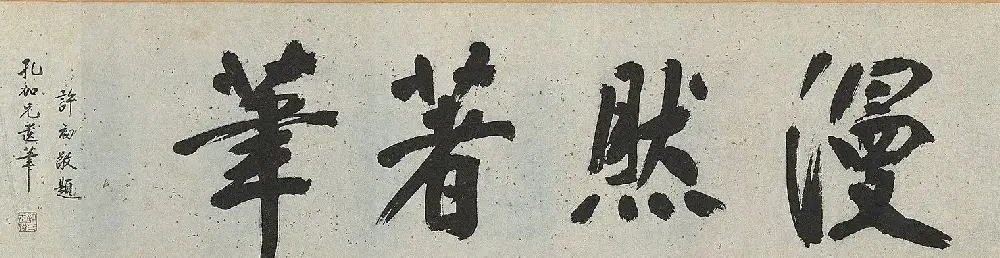 漫然著筆
許初敬題
孔加兄遺筆